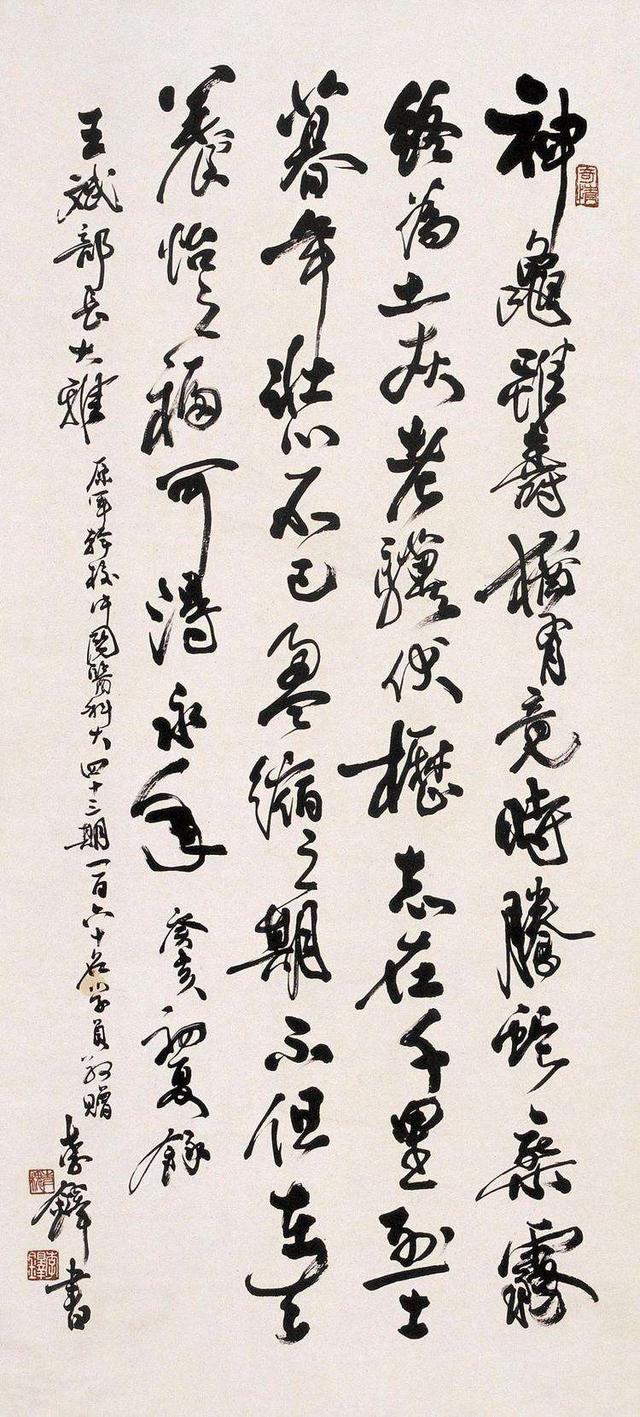 神龜雖壽猶有竟時騰蛇乘霧
終為土灰老驥伏櫪志在千里烈士
暮年壯心不已盈縮之期不但在天
養怡之福可得永年 癸亥初夏錄
王斌部長大雅 原軍幹校中國醫科大四十三期一百六十名學員敬贈 李鐸書
李鐸